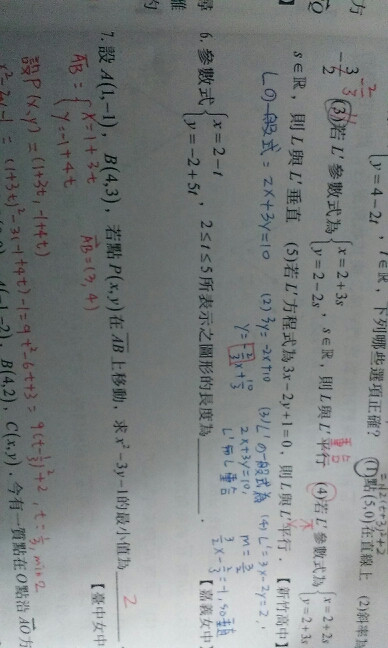 y=4-2t
, t∈ℝ, 下列哪些選項正確? (1)點(5,0)在直線上 (2)斜率為
-3/2 (3)若L'參數式為{x=2+3s y=2-2s, s∈ℝ, 則L與L'平行 (4)若L'參數式為{x=2+2s y=2+3s
重合
s∈ℝ, 則L與L'垂直 (5)若L'方程式為3x-2y+1=0, 則L與L'平行. 【新竹高中】
L的一般式=2x+3y=10
(2) 3y=-2x+10
(3) L'的一般式為
2x+3y=10,
L'與L重合
(4) L'=3x-2y=2,
6. 參數式{x=2-t y=-2+5t, 2≤t≤5所表示之圖形的長度為. 【嘉義女中】
7. 設A(1,-1), B(4,3), 若點P(x,y)在AB上移動, 求x²-3y-1的最小值為 2 【臺中女中
AB={x=1+3t y=-1+4t
AB=(3,4)
設P(x,y)=(1+3t,-1+4t)
=(1+3t)²-3(-1+4t)-1=9t²-6t+3=9(t-1/3)²+2, t=1/3, min=2
B(4,2), C(x,y). 今有一質點在O點沿AO方